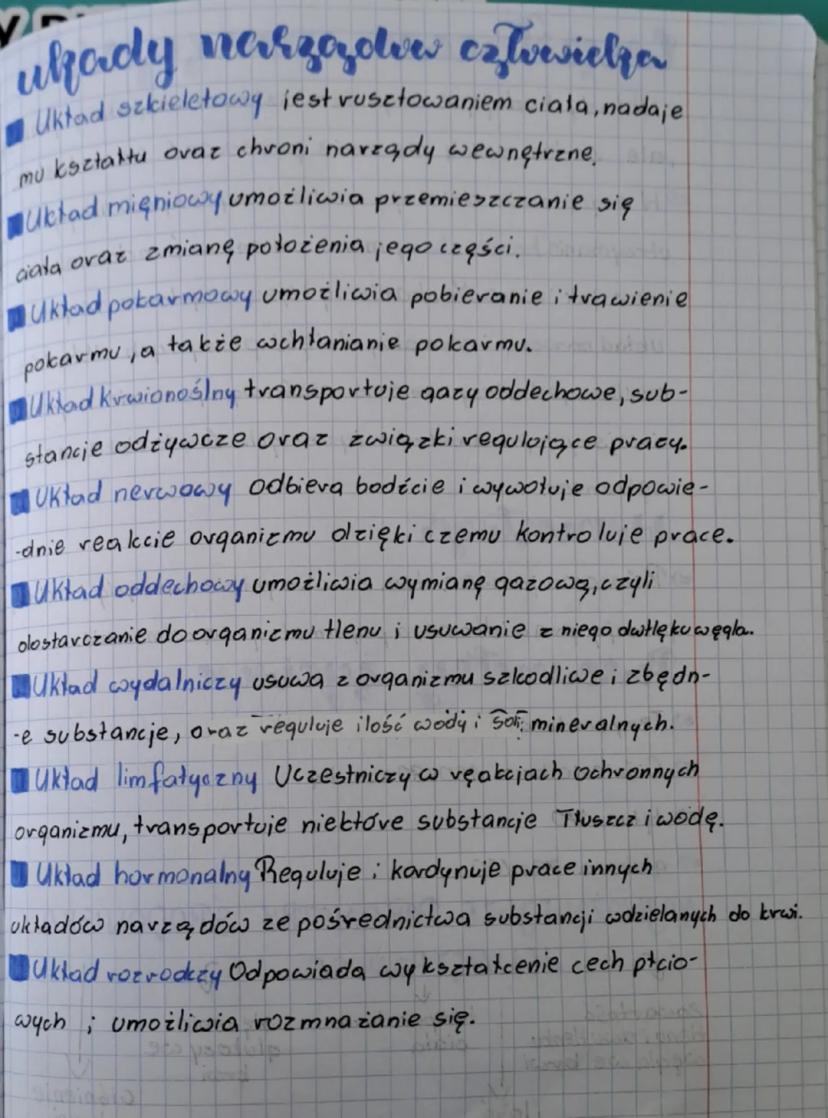 układy narządów człowieka
Układ szkieletowy jest rusztowaniem ciała, nadaje
mu kształtu oraz chroni narządy wewnętrzne.
Układ mięniowy umożliwia przemieszczanie się
ciała oraz zmianę położenia jego części.
Układ pokarmowy umożliwia pobieranie i trawienie
pokarmu, a także wchłanianie pokarmu.
Układ krwionoślny transportuje gazy oddechowe, sub-
stancje odżywcze oraz związki regulojące pracy.
Układ nerwowy odbiera bodźcie i wywołuje odpowie-
-dnie reakcie organizmu dzięki czemu kontroluje prace.
Układ oddechowy umożliwia wymianę gazową, czyli
dostarczanie do organizmu tlenu i usuwanie z niego dwtlęku węgla.
Układ wydalniczy usuwa z organizmu szkodliwe i zbędn-
-e substancje, oraz reguluje ilość wody i soli mineralnych.
Układ limfatyczny Uczestniczy w reakcjach ochronnych
organizmu, transportuje niektóre substancje Tłuszcz i wodę.
Układ hormonalny Reguluje i kordynuje prace innych
układów narządów ze pośrednictwa substancji wdzielanych do krwi.
Układ rozrodczy Odpowiada wykształcenie cech płcio-
wych i umożliwia rozmnażanie się.